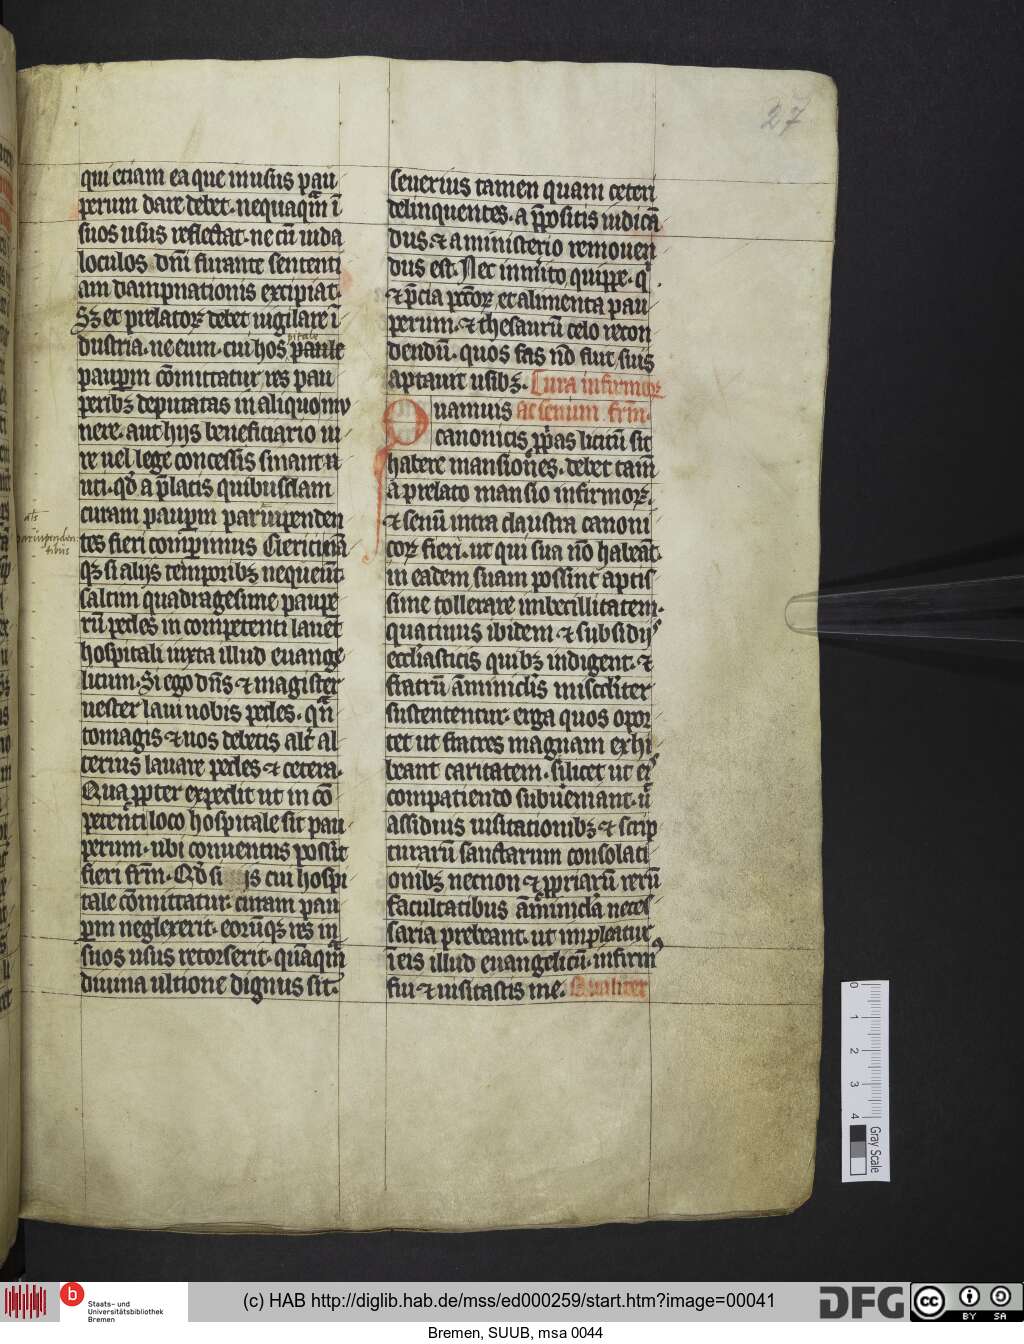 27
qui etiam ea que in usus pau
perum dare debet. nequaqͣm ī
suos usus reflectat. ne cū iuda
loculos dn̄i furante sententi
am dampnationis excipiat.
Sꝫ et prelatoꝝ debet uigilare ī
dustria. ne eum. cui hos paule
pitale
paupꝝm cōmittatur res pau
peribꝫ deputatas in aliquo mu
nere. aut hijs beneficiario iu
re uel lege concessis sinant᷑ u
uti. qđ a p̄latis quibusdam
curam paupꝝm paruipenden
tes fieri comperimus Clerici nā
qꝫ si alijs temporibꝫ nequeūt.
saltim quadragesime paupe
rū pedes in competenti lauēt
hospitali iuxta illud euange
licum. Si ego dn̄s ⁊ magister
uester laui uobis pedes. qͣn
tomagis ⁊ uos debetis alt̄ al
terius lauare pedes ⁊ cetera.
Qua ꝓpter expedit ut in cō
petenti loco hospitale sit pau
perum. ubi conuentus possit
fieri frm̄. Qđ si is cui hospi
tale cōmittatur. curam pau
pꝝm neglexerit. eorūqꝫ res in
suos usus retorserit. quāqͣm
diuina ultione dignus sit.
als
paruipenden
tibus
seuerius tamen quam ceteri
delinquentes. a p̄positis iudicā
dus. ⁊ a ministerio remouen
dus est. Nec inmīto quippe. q̄
⁊ p̄cia pctōꝝ et alimenta pau
perum. ⁊ thesaurū celo recon
dendū. quos fas n̄ fuit suis
aptant usibꝫ. Cura infirmoꝝ
Quamuis ac senum frm̄.
canonicis ꝓp̄as licitū sit
habere mansiōnes. debet tam̄
a prelato mansio infirmoꝝ.
⁊ senū intra claustra canoni
coꝝ fieri. ut qui sua nō habeāt.
in eadem suam possint aptis
sime tollerare imbecillitatem.
quatinus ibidem ⁊ subsidijs
eccl̄iasticis quibꝫ indigent. ⁊
fratrū āminicl̄is misc̄diter
sustententur. erga quos opor
tet ut fratres magnam exhi
beant caritatem. silicet ut eis
compatiendo subueniant. ū
assiduis uisitationibꝫ ⁊ scrip
turarū sanctarum consolati
onibꝫ necnon ⁊ ꝓpriarū rerū
facultatibus āminicla neces
saria prebeant. ut impleatur
ī eis illud euangelicū. infirmꝰ
fui ⁊ uisitastis me. Qualiter
0
1
2
3
4
Gray Scale
b
Staats- und
Universitätsbibliothek
Bremen
(c) HAB http://diglib.hab.de/mss/ed000259/start.htm?image=00041
DFG
cc
BY SA
Bremen, SUUB, msa 0044